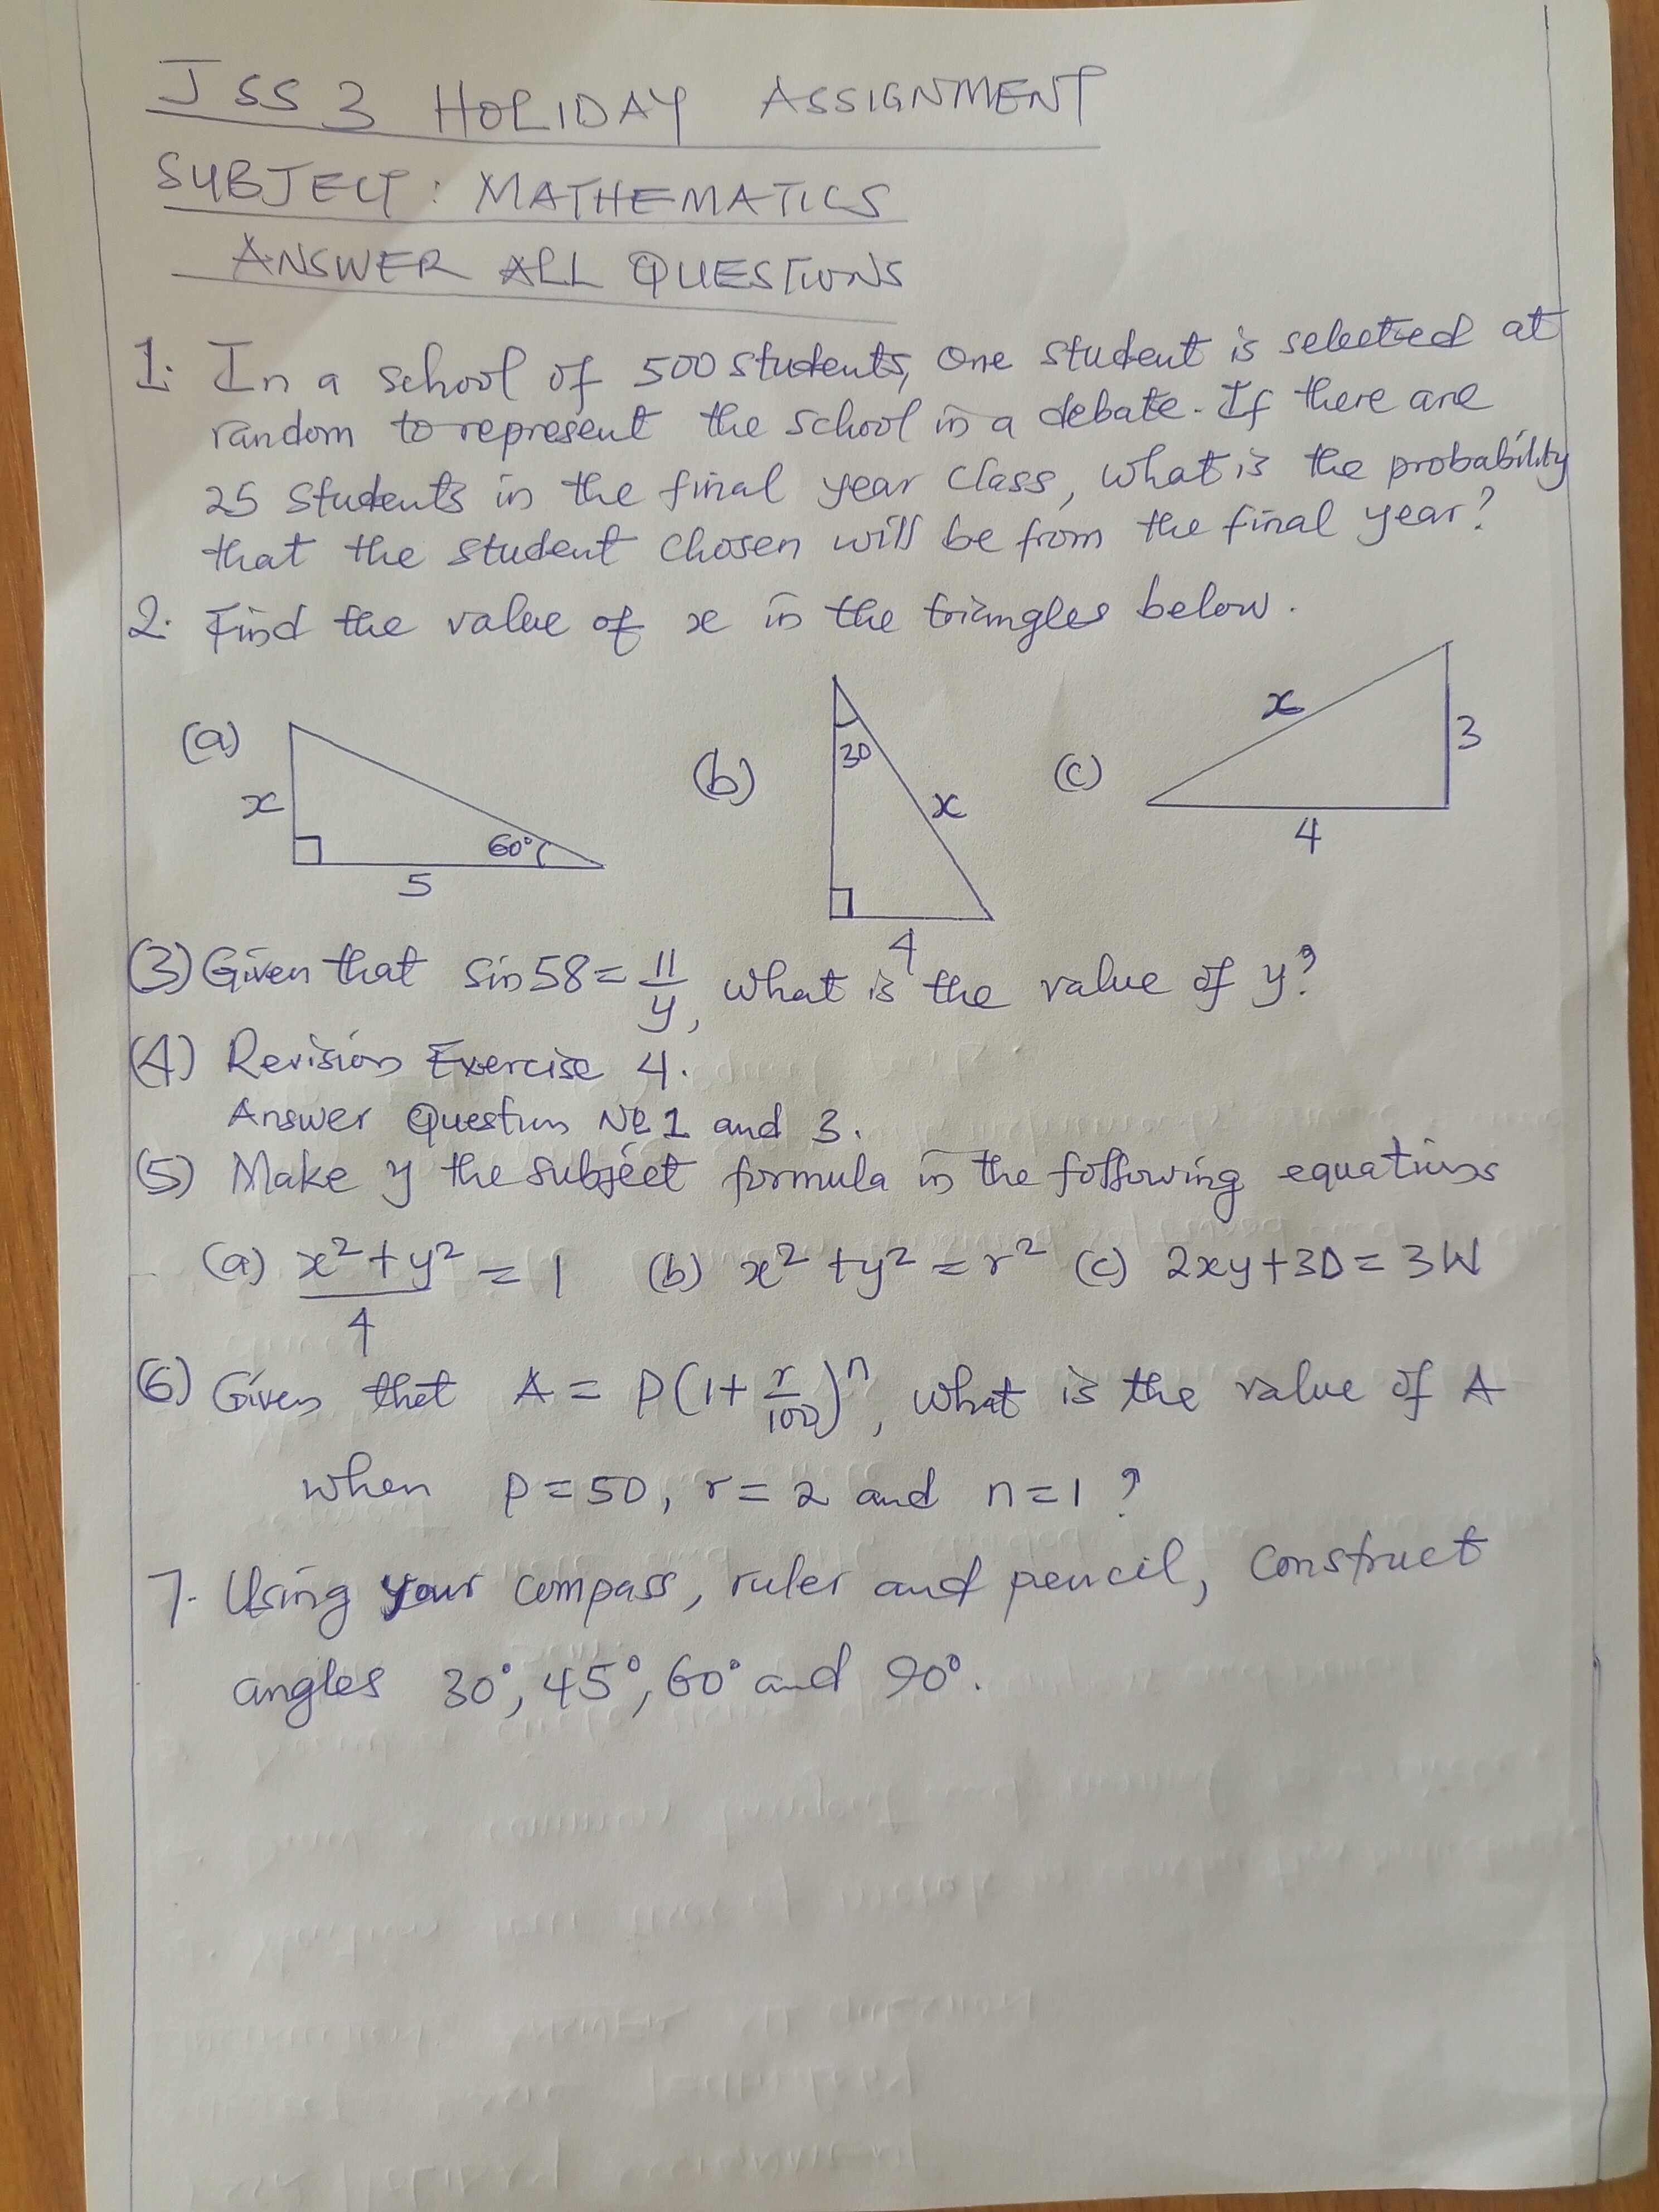 JSS 3 HOLIDAY ASSIGNMENT
SUBJECT: MATHEMATICS
ANSWER ALL QUESTIONS
1. In a school of 500 students, one student is selected at
random to represent the school in a debate. If there are
25 students in the final year class, what is the probability
that the student chosen will be from the final year?
2. Find the value of x in the triangles below.
(a) x 60° 5
(b) 30 x 4
(c) x 3 4
(3) Given that sin 58 = 11/y, what is the value of y?
(4) Revision Exercise 4.
Answer Question No 1 and 3.
(5) Make y the subject formula in the following equations
(a) x² + y²/4 = 1 (b) x² + y² = r² (c) 2xy + 3D = 3W
(6) Given that A = P(1 + r/100)ⁿ, what is the value of A
when P = 50, r = 2 and n = 1?
7. Using your compass, ruler and pencil, construct
angles 30°, 45°, 60° and 90°.